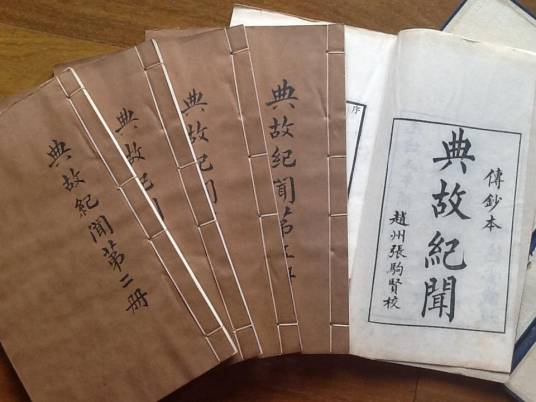 典故紀聞第二冊
典故紀聞
典故紀聞
典故紀聞第
序
傳鈔本
典故紀聞
趙州張駒賢校